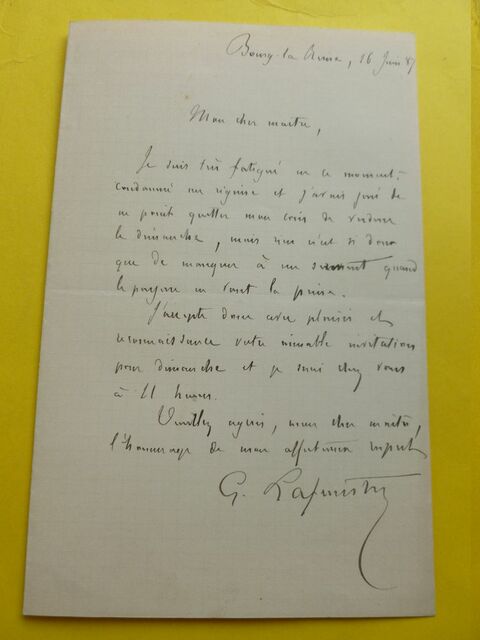 Bourg-la-Reine, 16 Juin 87
Mon cher maître,
Je suis très fatigué en ce moment,
condamné au régime et j'avais juré de
ne point quitter mon coin de verdure
le dimanche, mais rien n'est si doux
que de manquer à un serment quand
le parjure en vaut la peine.
J'accepte donc avec plaisir et
reconnaissance votre aimable invitation
pour dimanche et je serai chez vous
à 11 heures.
Veuillez agréer, mon cher maître,
l'hommage de mon affectueux respect
G. Lafenestre